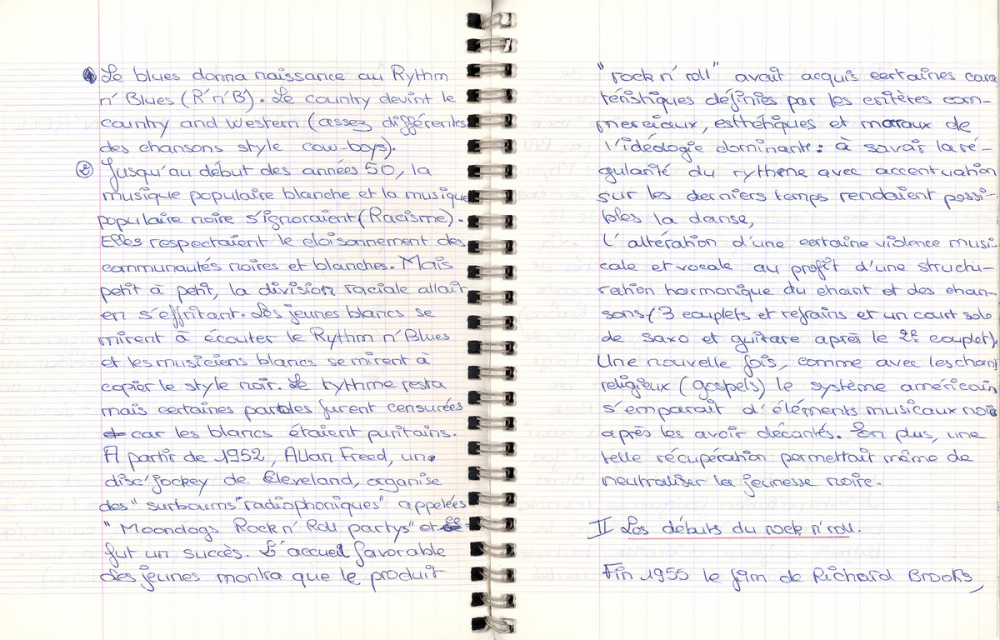 ① Le blues donna naissance au Rythm
n' Blues (R'n'B). Le country devint le
country and western (assez différents
des chansons style cow-boys).
② Jusqu'au début des années 50, la
musique populaire blanche et la musique
populaire noire s'ignoraient (Racisme).
Elles respectaient le cloisonnement des
communautés noires et blanches. Mais
petit à petit, la division raciale allait
en s'effritant. Les jeunes blancs se
mirent à écouter le Rythm n' Blues
et les musiciens blancs se mirent à
copier le style noir. Le rythme resta
mais certaines paroles furent censurées
car les blancs étaient puritains.
A partir de 1952, Allan Freed, un
disc'jockey de Cleveland, organise
des "surboums radiophoniques" appelées
"Moondogs Rock n' Roll partys" et
fut un succès. L'accueil favorable
des jeunes montra que le produit
"rock n' roll" avait acquis certaines cara
téristiques définies par les critères com-
merciaux, esthétiques et moraux de
l'idéologie dominante : à savoir la ré-
gularité du rythme avec accentuation
sur les derniers temps rendaient possi-
bles la danse,
L'altération d'une certaine violence musi
cale et vocale au profit d'une structu-
ration harmonique du chant et des chan-
sons (3 couplets et refrains et un court solo
de saxo et guitare après le 2e couplet).
Une nouvelle fois, comme avec les chants
religieux (gospels) le système américain
s'emparait d'éléments musicaux noirs
après les avoir décantés. En plus, une
telle récupération permettait même de
neutraliser la jeunesse noire.
II Les débuts du rock n' roll.
Fin 1955 le film de Richard Brooks,